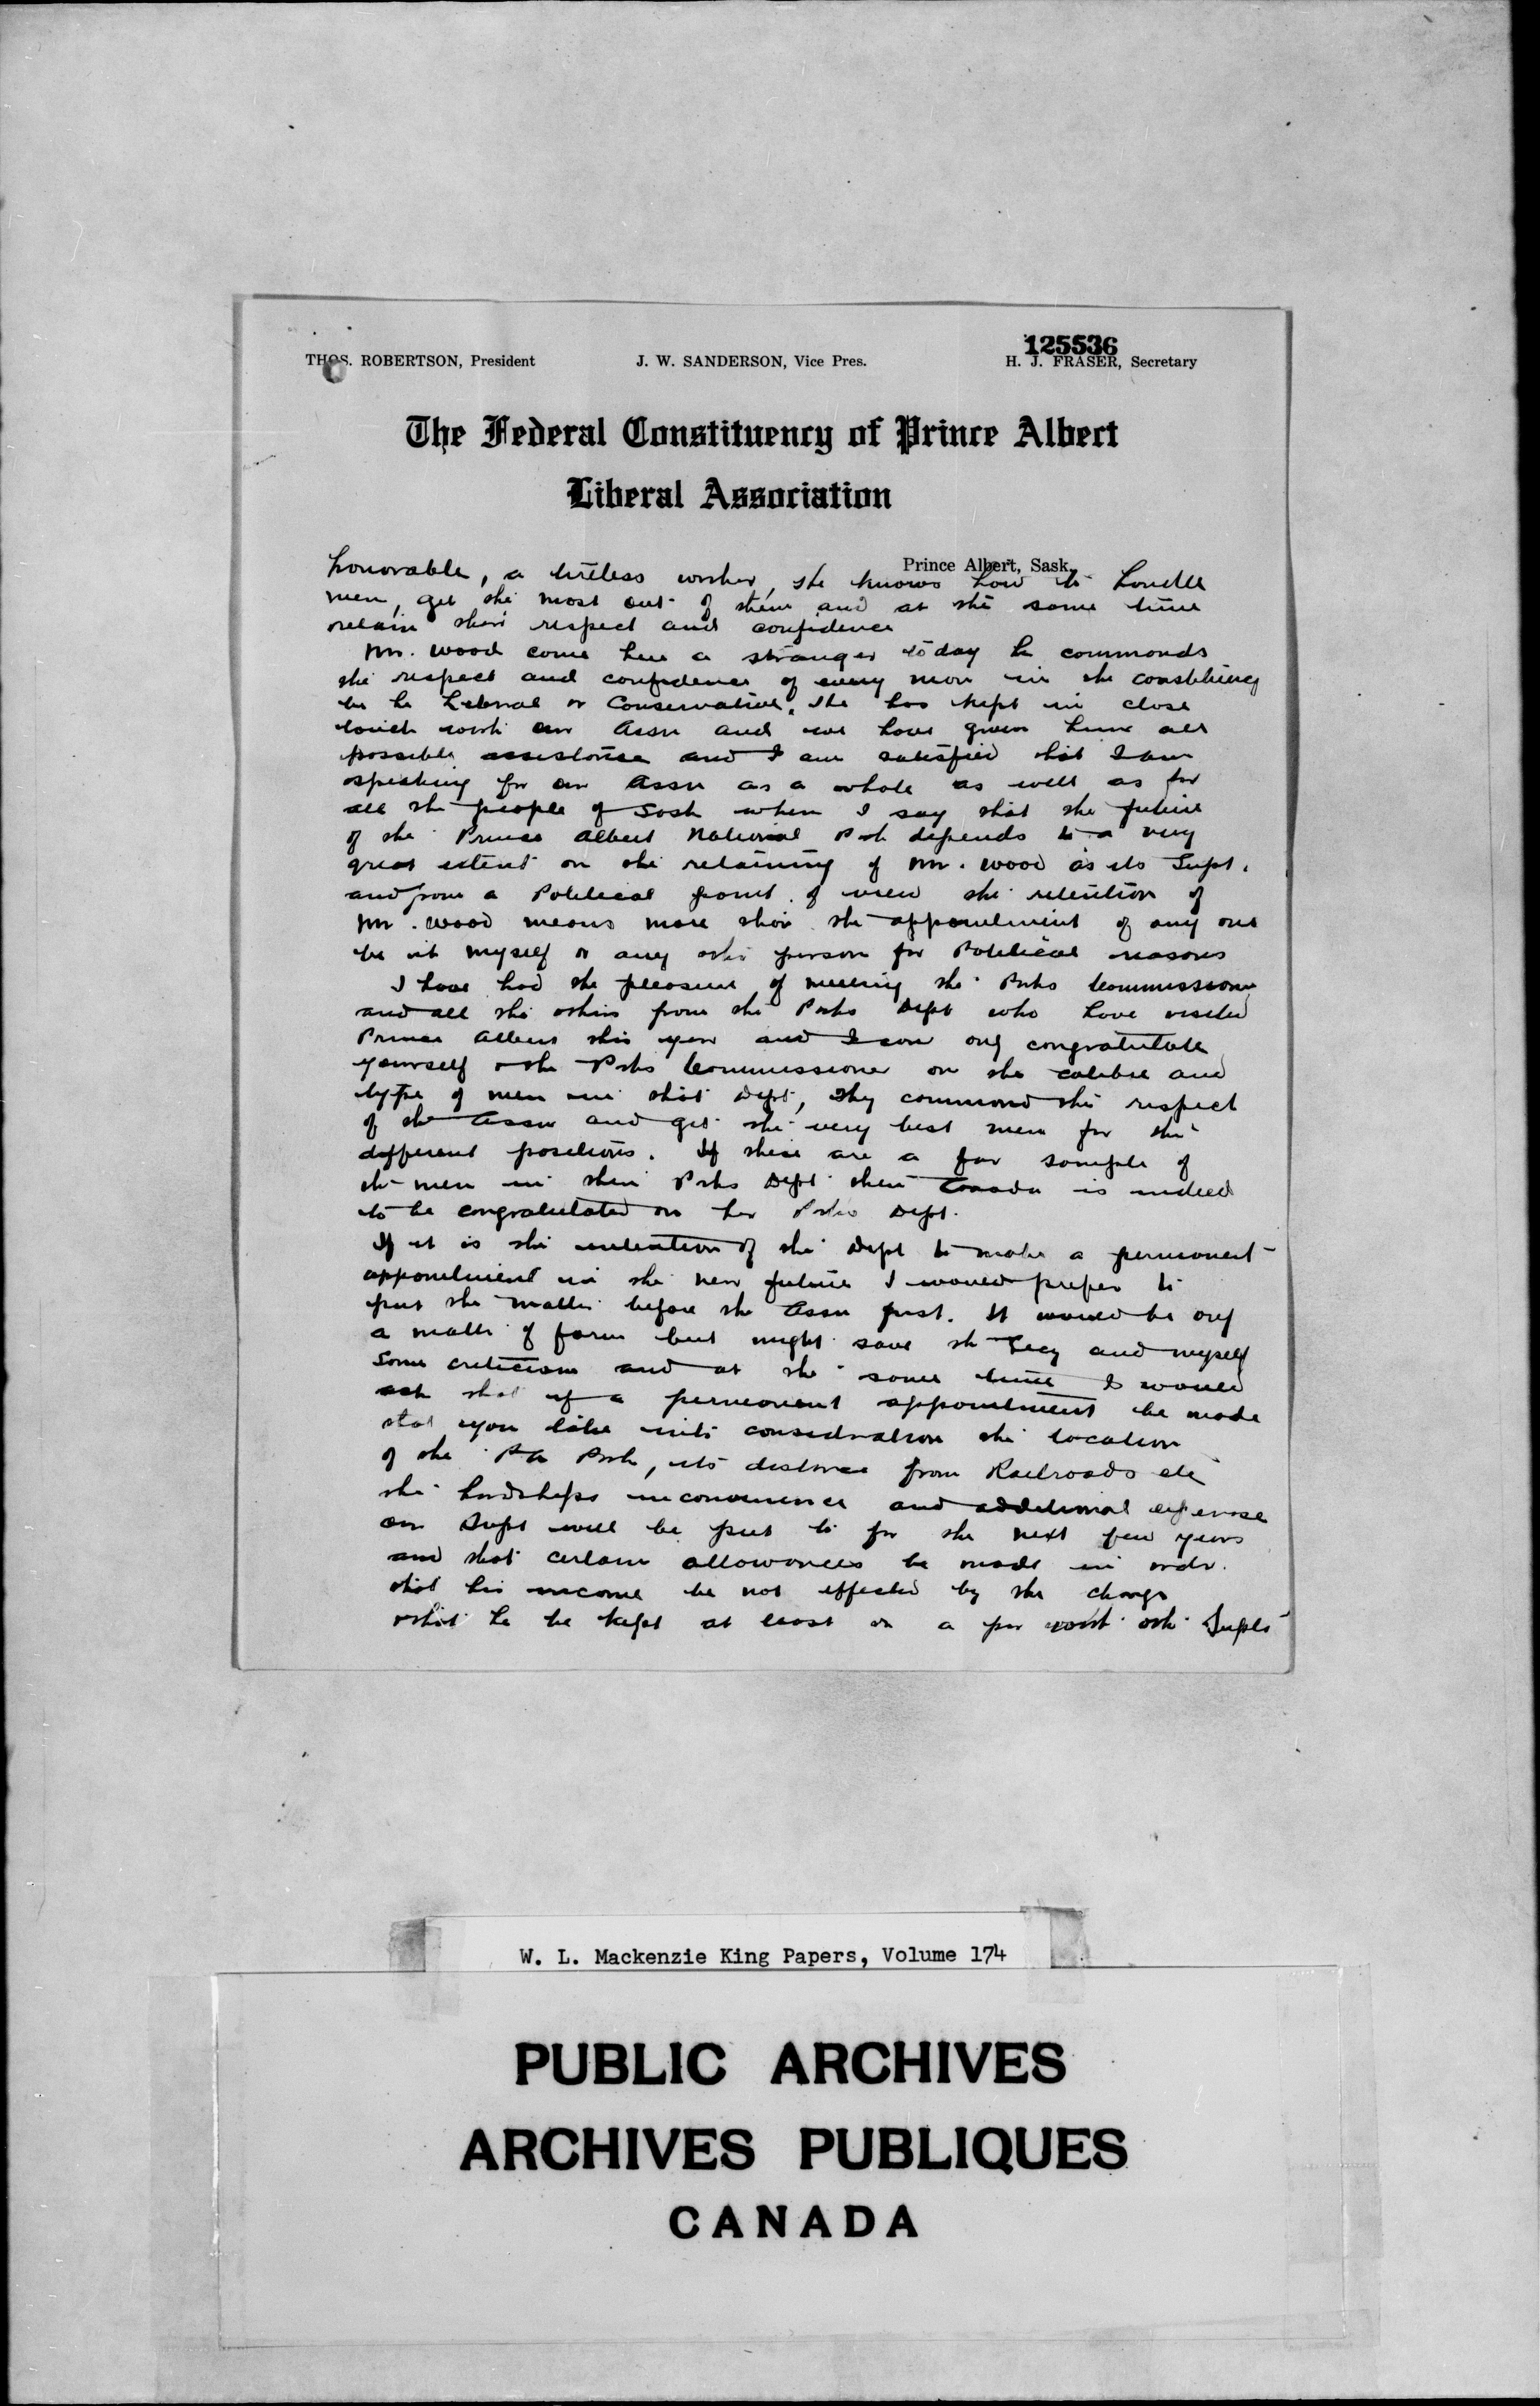 125536
THOS. ROBERTSON, President J. W. SANDERSON, Vice Pres. H. J. FRASER, Secretary
The Federal Constituency of Prince Albert
Liberal Association
Prince Albert, Sask.
honorable, a tireless worker, he knows how to handle
men, get the most out of them and at the same time
retain their respect and confidence
Mr. Wood came here a stranger today he commands
the respect and confidence of every man in the constituency
be he Liberal or Conservative. He has kept in close
touch with our Assn and we have given him all
possible assistance and I am satisfied that I am
speaking for our Assn as a whole as well as for
all the people of Sask when I say that the future
of the Prince Albert National Park depends to a very
great extent on the retaining of Mr. Wood as its Supt.
and from a Political point of view the retention of
Mr. Wood means more than the appointment of any one
be it myself or any other person for Political reasons
I have had the pleasure of meeting the Parks Commissioner
and all the others from the Parks Dept who have visited
Prince Albert this year and I can only congratulate
yourself & the Parks Commissioner on the calibre and
type of men in that Dept, they command the respect
of the Assn and get the very best men for the
different positions. If these are a fair sample of
the men in their Parks Dept then Canada is indeed
to be congratulated on her Parks Dept.
If it is the intention of the Dept to make a permanent
appointment in the near future I would prefer to
put the matter before the Assn first. It would be only
a matter of form but might save the Secy and myself
some criticism and at the same time I would
ask that if a permanent appointment be made
that you take into consideration the location
of the PA Park, its distance from Railroads etc
the hardships inconvenience and additional expense
our Supt will be put to for the next few years
and that certain allowances be made in order
that his income be not effected by the change
& that he be kept at least on a par with other Supts
W. L. Mackenzie King Papers, Volume 174
PUBLIC ARCHIVES
ARCHIVES PUBLIQUES
CANADA